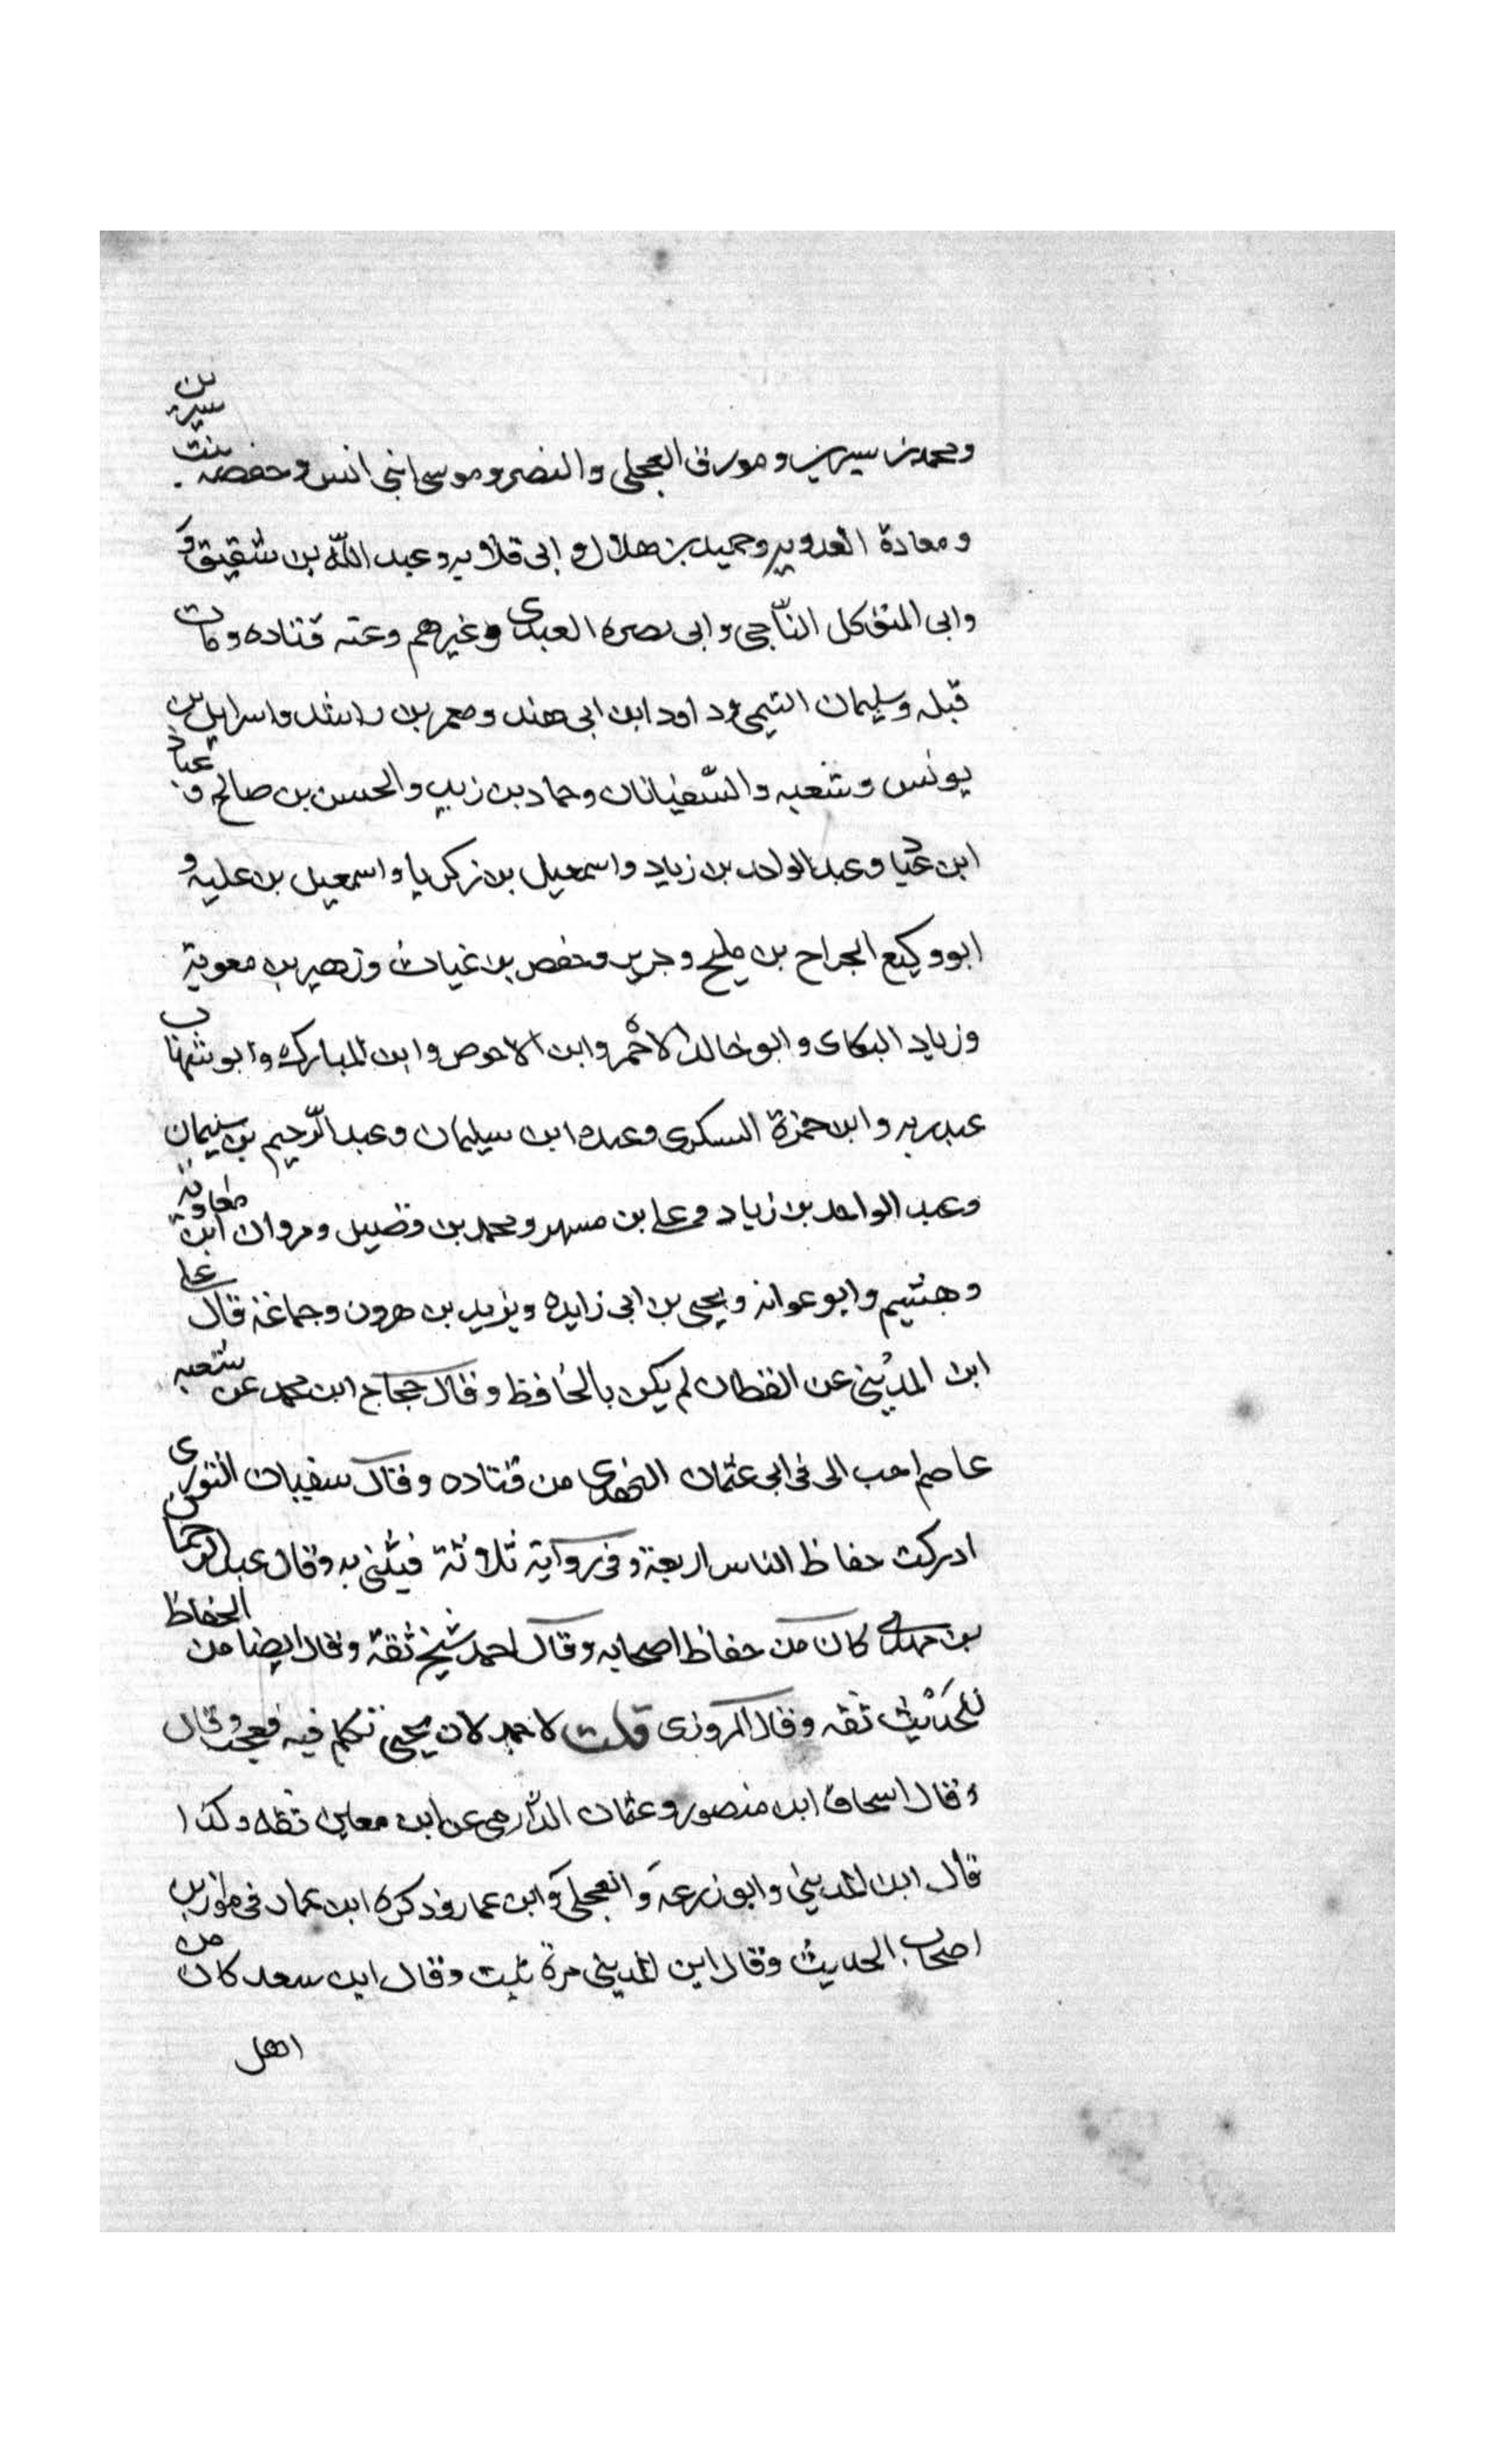 ومحمد بن سيرين ومورق العجلى والنضر وموسى ابنى انس وحفصه بنت سيرين
ومعاذة العدويه وحميد بن هلال وابى قلابه وعبد الله بن شقيق و
وابى المتوكل الناجى وابى نصره العبدى وغيرهم وعنه قتاده ومات
قبله وسليمان التيمى وداود ابن ابى هند ومعمر بن راشد واسرايل بن
يونس وشعبه والسّفيانان وحماد بن زيد والحسن بن صالح و عباد
ابن عباد وعبد الواحد بن زياد واسمعيل بن زكريا واسمعيل بن عليه و
ابو وكيع الجراح بن مليح وجرير وحفص بن غياث وزهير بن معوية
وزياد البكاى وابو خالد الاحمر وابن الاحوص وابن المبارك وابو شهاب
عبد ربه وابن حمزة السكرى وعبده ابن سليمان وعبد الرّحيم بن سليمان
وعبد الواحد بن زياد وعلى بن مسهر ومحمد بن فضيل ومروان ابن معاوية
وهشيم وابو عوانه ويحيى بن ابى زايده ويزيد بن هرون وجماعة قال على
ابن المديني عن القطان لم يكن بالحافظ وقال حجاج ابن محمد عن شعبه
عاصم احب الى فى ابى عثمان النهدى من قتاده وقال سفيان الثورى
ادركت حفاظ الناس اربعة وفى رواية ثلاثة فيثنى به وقال عبد الرحمان
بن مهدى كان من حفاظ اصحابه وقال احمد شيخ ثقة وقال ايضا من الحفاظ
للحديث ثقه وقال المروزى قلت لاحمد لان يحيى تكلم فيه فعجب وقال
وقال اسحاق ابن منصور وعثمان الدّارمى عن ابن معين ثقه وكذا
قال ابن المديني وابو زرعه والعجلى وابن عمار وذكره ابن عمار فى موازين
اصحاب الحديث وقال ابن المديني مرة ثبت وقال ابن سعد كان من
اهل